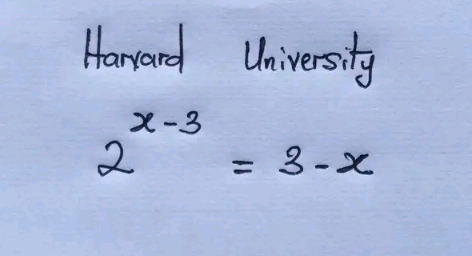 Harvard University
2^{x-3} = 3-x